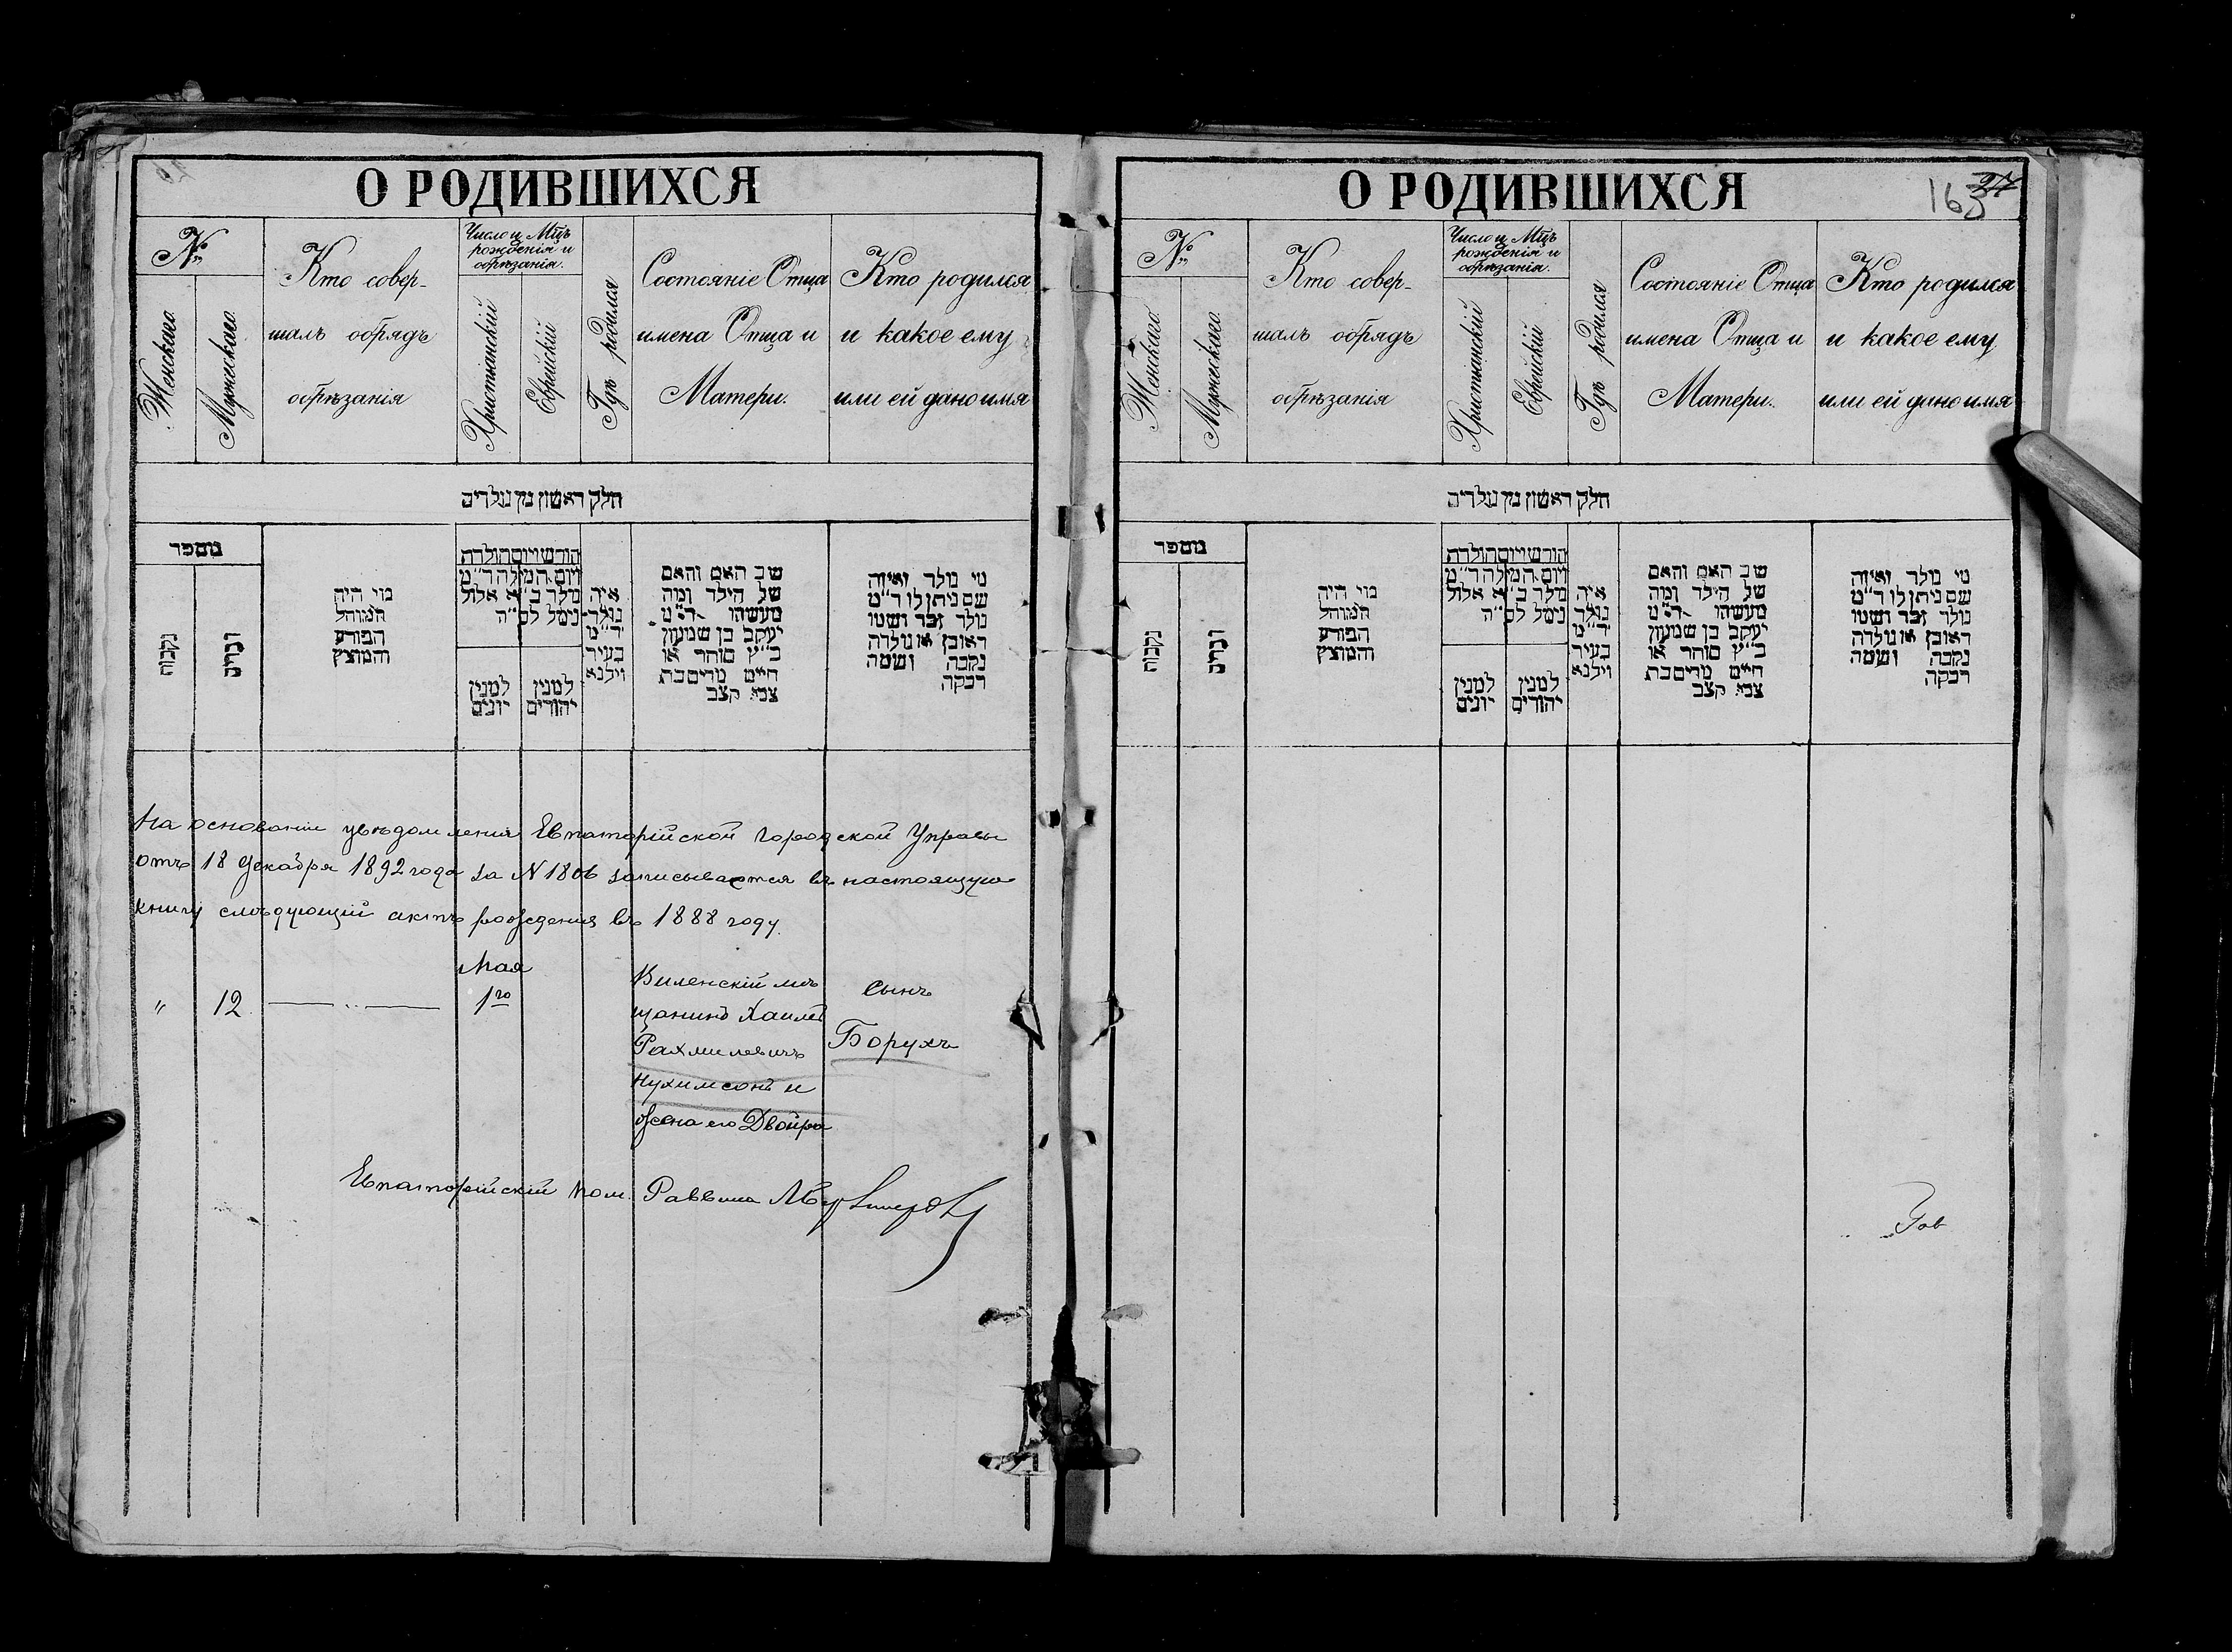 О РОДИВШИХСЯ
№
Женскаго.
Мужескаго.
Кто совер-
шалъ обрядъ
обрѣзанія
Число и Мцъ
рожденія и
обрѣзанія.
Христіанскій
Еврейскій
Гдѣ родился
Состояніе Отца
имена Отца и
Матери.
Кто родился
и какое ему
или ей дано имя
חלק ראשון מן נולדים
מספר
נקבות
זכרים
מי היה
המוהל
הפורע
והמוצץ
חודש ויום הולדת
ויום המילה ד״מ
נולד ב״א אלול
נימל לס״ה
למנין
יונים
למנין
יהודים
איה
נולד
ד״מ
בעיר
ווילנא
שם האם והאם
של הילד ומה
מעשהו ד״מ
יעקב בן שמעון
כ״ץ סוחר או
חיים מרים בת
צבי קצב
מי נולד ואיזה
שם ניתן לו ד״מ
נולד זכר ושמו
ראובן או נולדה
נקבה ושמה
רבקה
На основаніи увѣдомленія Евпаторійской Городской Управы
отъ 18 декабря 1892 года за N 1806 записывается въ настоящую
книгу слѣдующій актъ рожденія въ 1888 году.
" 12 — „ —
Мая
1го
Виленскій мѣ
щанинъ Хаимъ
Рахмилевичъ
Нухимсонъ и
жена его Двойра
Сынъ
Борухъ
Евпаторійскій пом. Раввина
О РОДИВШИХСЯ
163
27
№
Женскаго.
Мужескаго.
Кто совер-
шалъ обрядъ
обрѣзанія
Число и Мцъ
рожденія и
обрѣзанія.
Христіанскій
Еврейскій
Гдѣ родился
Состояніе Отца
имена Отца и
Матери.
Кто родился
и какое ему
или ей дано имя
חלק ראשון מן נולדים
מספר
נקבות
זכרים
מי היה
המוהל
הפורע
והמוצץ
חודש ויום הולדת
ויום המילה ד״מ
נולד ב״א אלול
נימל לס״ה
למנין
יונים
למנין
יהודים
איה
נולד
ד״מ
בעיר
ווילנא
שם האם והאם
של הילד ומה
מעשהו ד״מ
יעקב בן שמעון
כ״ץ סוחר או
חיים מרים בת
צבי קצב
מי נולד ואיזה
שם ניתן לו ד״מ
נולד זכר ושמו
ראובן או נולדה
נקבה ושמה
רבקה